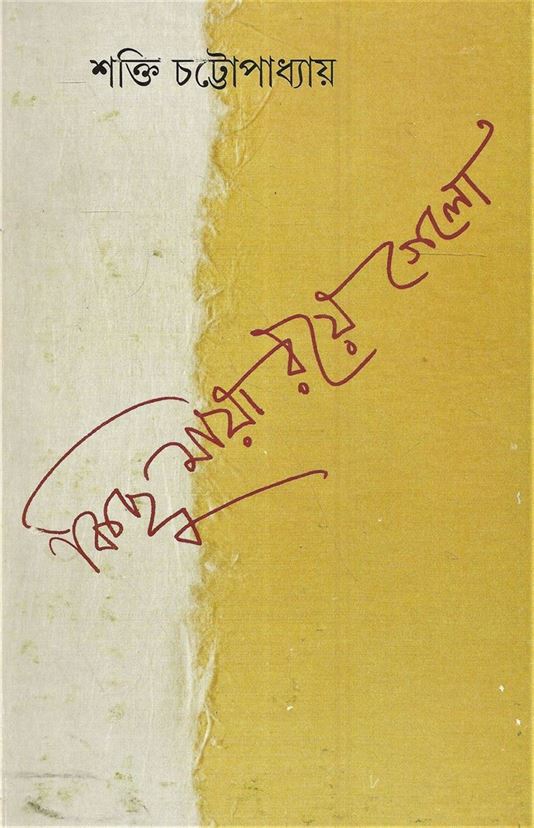 শক্তি চট্টোপাধ্যায়
কিছু মায়া রয়ে গেলো